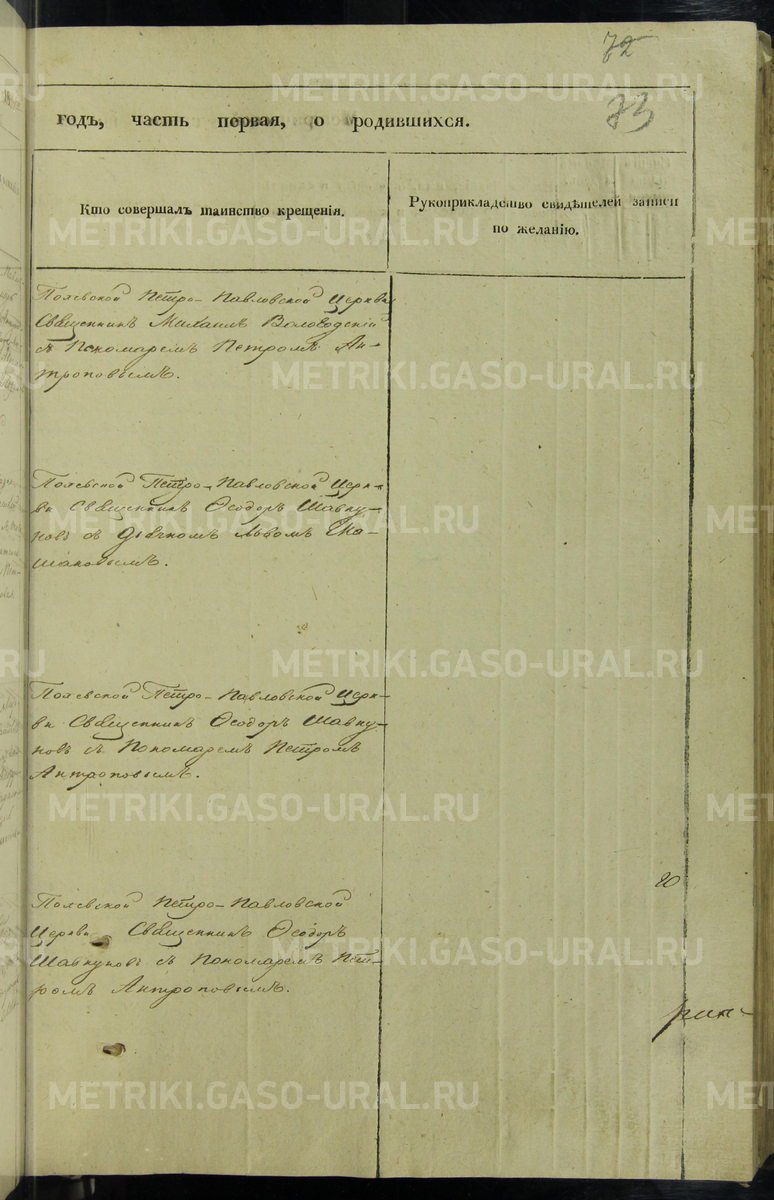 72
73
METRIKI.GASO-URAL.RU
годъ, часть первая, о родившихся.
Кто совершалъ таинство крещенія.
Рукоприкладство свидѣтелей записи
по желанію.
METRIKI.GASO-URAL.RU
Полевской Петро-Павловской Церкви
Священникъ Михаилъ Вологодскій
съ Пономаремъ Петромъ Ан-
троповымъ.
METRIKI.GASO-URAL.RU
Полевской Петро-Павловской Церк-
ви Священникъ Ѳеодоръ Шавку-
новъ съ Дьячкомъ Львомъ
METRIKI.GASO-URAL.RU
METRIKI.GASO-URAL.RU
Полевской Петро-Павловской Церк-
ви Священникъ Ѳеодоръ Шавку-
новъ съ Пономаремъ Петромъ
Антроповымъ.
METRIKI.GASO-URAL.RU
Полевской Петро-Павловской
Церкви Священникъ Ѳеодоръ
Шавкуновъ съ Пономаремъ Пет-
ромъ Антроповымъ.
METRIKI.GASO-URAL.RU
METRIKI.GASO-URAL.RU